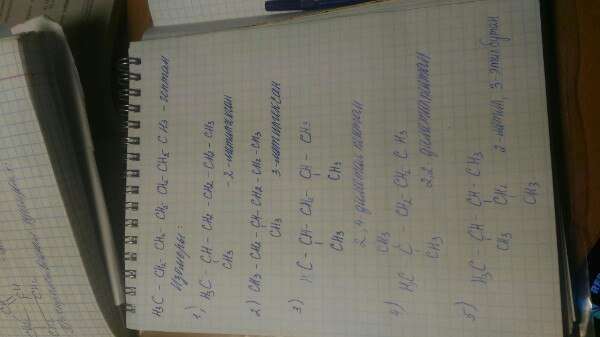 H3C - CH2 - CH2 - CH2 - CH2 - CH2 - CH3 - гептан
Изомеры:
1) H3C - CH - CH2 - CH2 - CH2 - CH3
CH3
- 2-метилгексан
2) CH3 - CH2 - CH - CH2 - CH2 - CH3
CH3
3-метилгексан
3) H3C - CH - CH2 - CH - CH3
CH3 CH3
2,4 диметил пентан
4) CH3
H3C C - CH2 CH2 CH3
CH3
2,2 диметилпентан
5) H3C - CH - CH - CH3
CH3 CH2
CH3
2-метил, 3-этилбутан